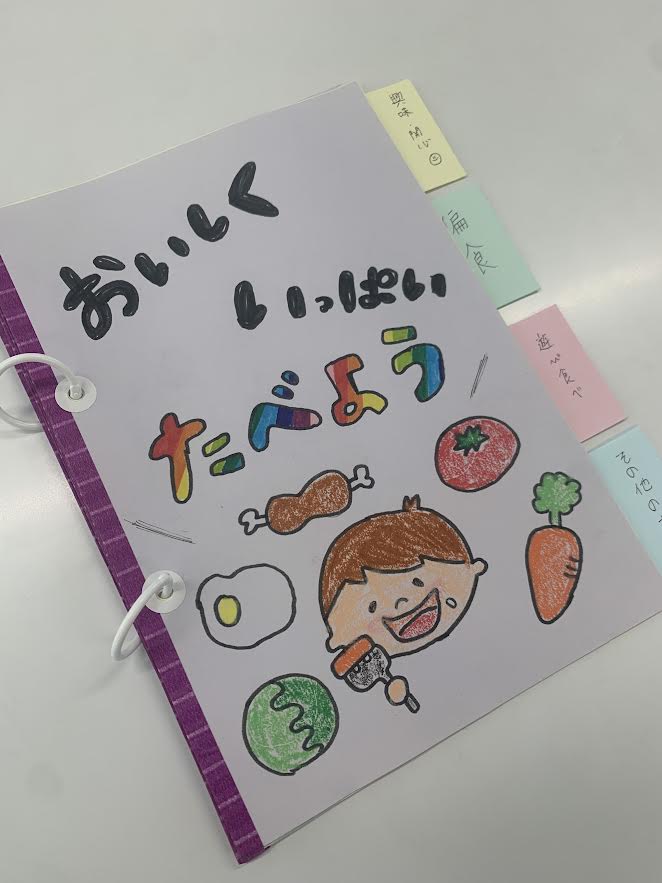 おいしく
いっぱい
たべよう
興味・関心②
偏食
遊べ食べ
その他の